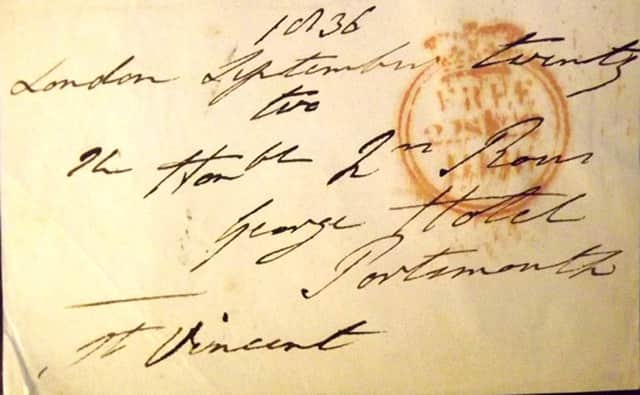 1836
London September twenty
two
The Honble Rous
George Hotel
Portsmouth
St Vincent
FREE